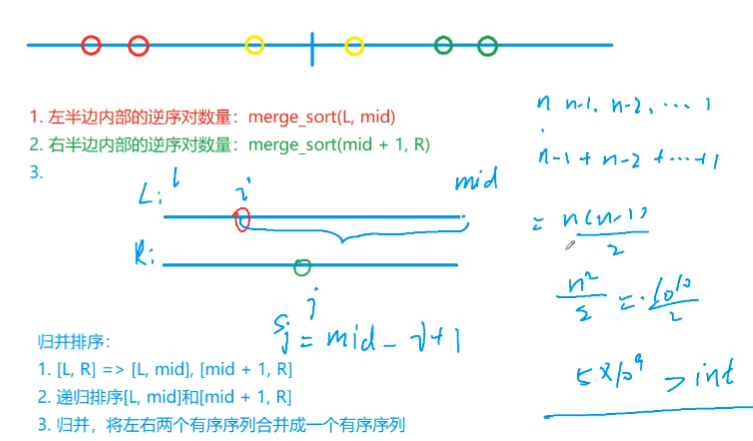 1. 左半边内部的逆序对数量：merge_sort(L, mid)
2. 右半边内部的逆序对数量：merge_sort(mid + 1, R)
3.
L: l i mid
R:
j
Sj = mid - i + 1
归并排序：
1. [L, R] => [L, mid], [mid + 1, R]
2. 递归排序[L, mid]和[mid + 1, R]
3. 归并，将左右两个有序序列合并成一个有序序列
n n-1, n-2, ... 1
n-1 + n-2 + ... + 1
= n(n-1)
2
n²/2 = 10¹⁰/2
5×10⁹ > int